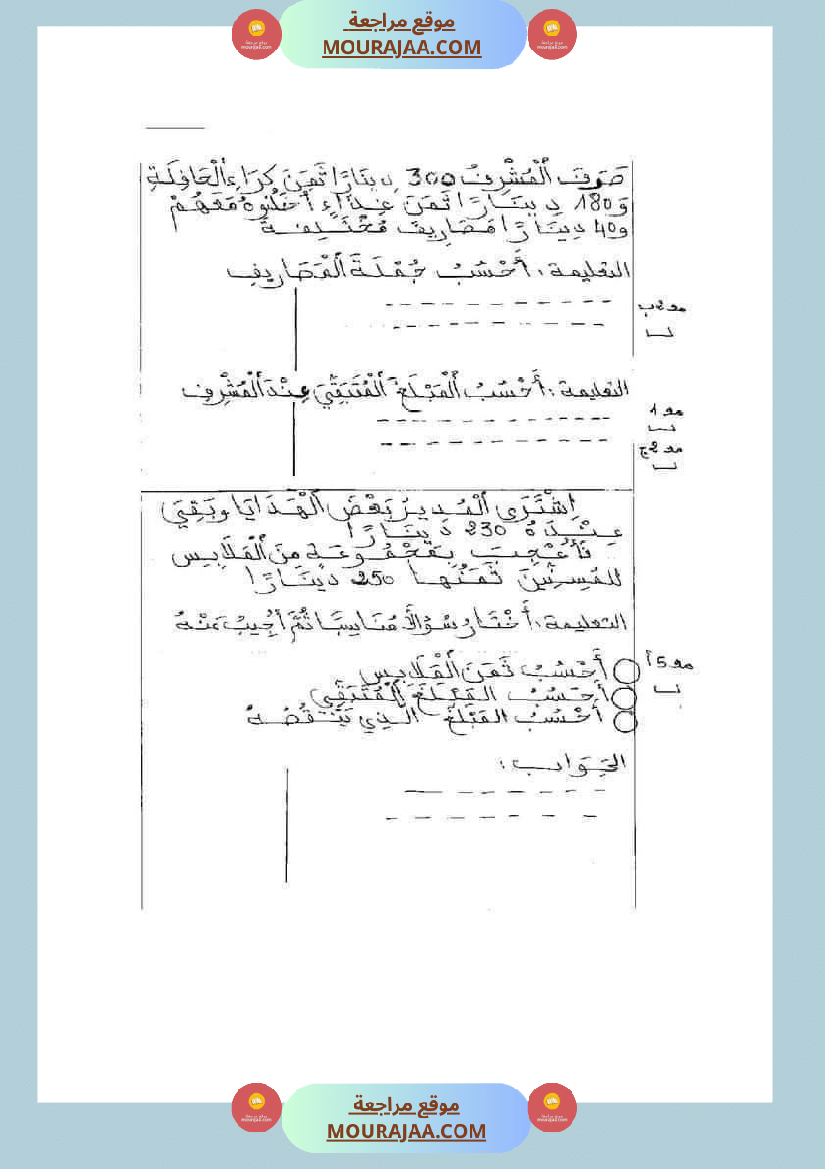 موقع مراجعة
MOURAJAA.COM
صَرَفَ الْمُشْرِفُ 300 دِينَارًا ثَمَنَ كِرَاءِ الْحَافِلَةِ
وَ180 دِينَارًا ثَمَنَ غِذَاءٍ أَخَذُوهُ مَعَهُمْ
و40 دِينَارًا مَصَارِيفَ مُخْتَلِفَةً
التعليمة : أَحْسُبُ جُمْلَةَ الْمَصَارِيفِ
مع 2ب
التعليمة : أَحْسُبُ الْمَبْلَغَ الْمُتَبَقِّيَ عِنْدَ الْمُشْرِفِ
مع 1
مع 2ج
اِشْتَرَى الْمُدِيرُ بَعْضَ الْهَدَايَا وبَقِيَ
عِنْدَهُ 230 دِينَارًا
فَأُعْجِبَ بِمَجْمُوعَةٍ مِنَ الْمَلَابِسِ
لِلْمُسِنِّينَ ثَمَنُهَا 250 دِينَارًا
التعليمة : أَخْتَارُ سُؤَالًا مُنَاسِبًا ثُمَّ أُجِيبُ عَنْهُ
أَحْسُبُ ثَمَنَ الْمَلَابِسِ
مع 5أ
أَحْسُبُ الْمَبْلَغَ الْمُتَبَقِّي
أَحْسُبُ الْمَبْلَغَ الَّذِي يَنْقُصُهُ
الجَوَاب :
موقع مراجعة
MOURAJAA.COM